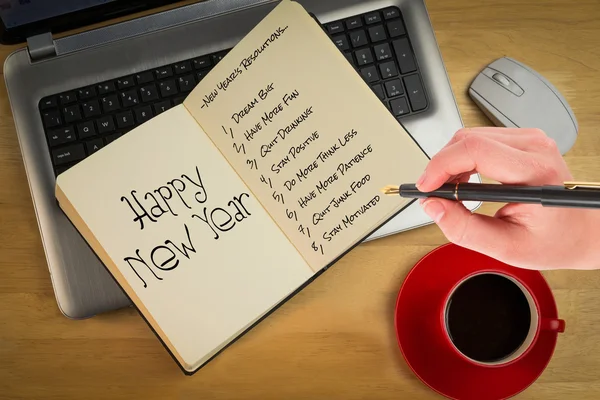 Happy
New Year
-New Year's Resolutions...
1, Dream Big
2, Have More Fun
3, Quit Drinking
4, Stay Positive
5, Do More Think Less
6, Have More Patience
7, Quit Junk Food
8, Stay Motivated